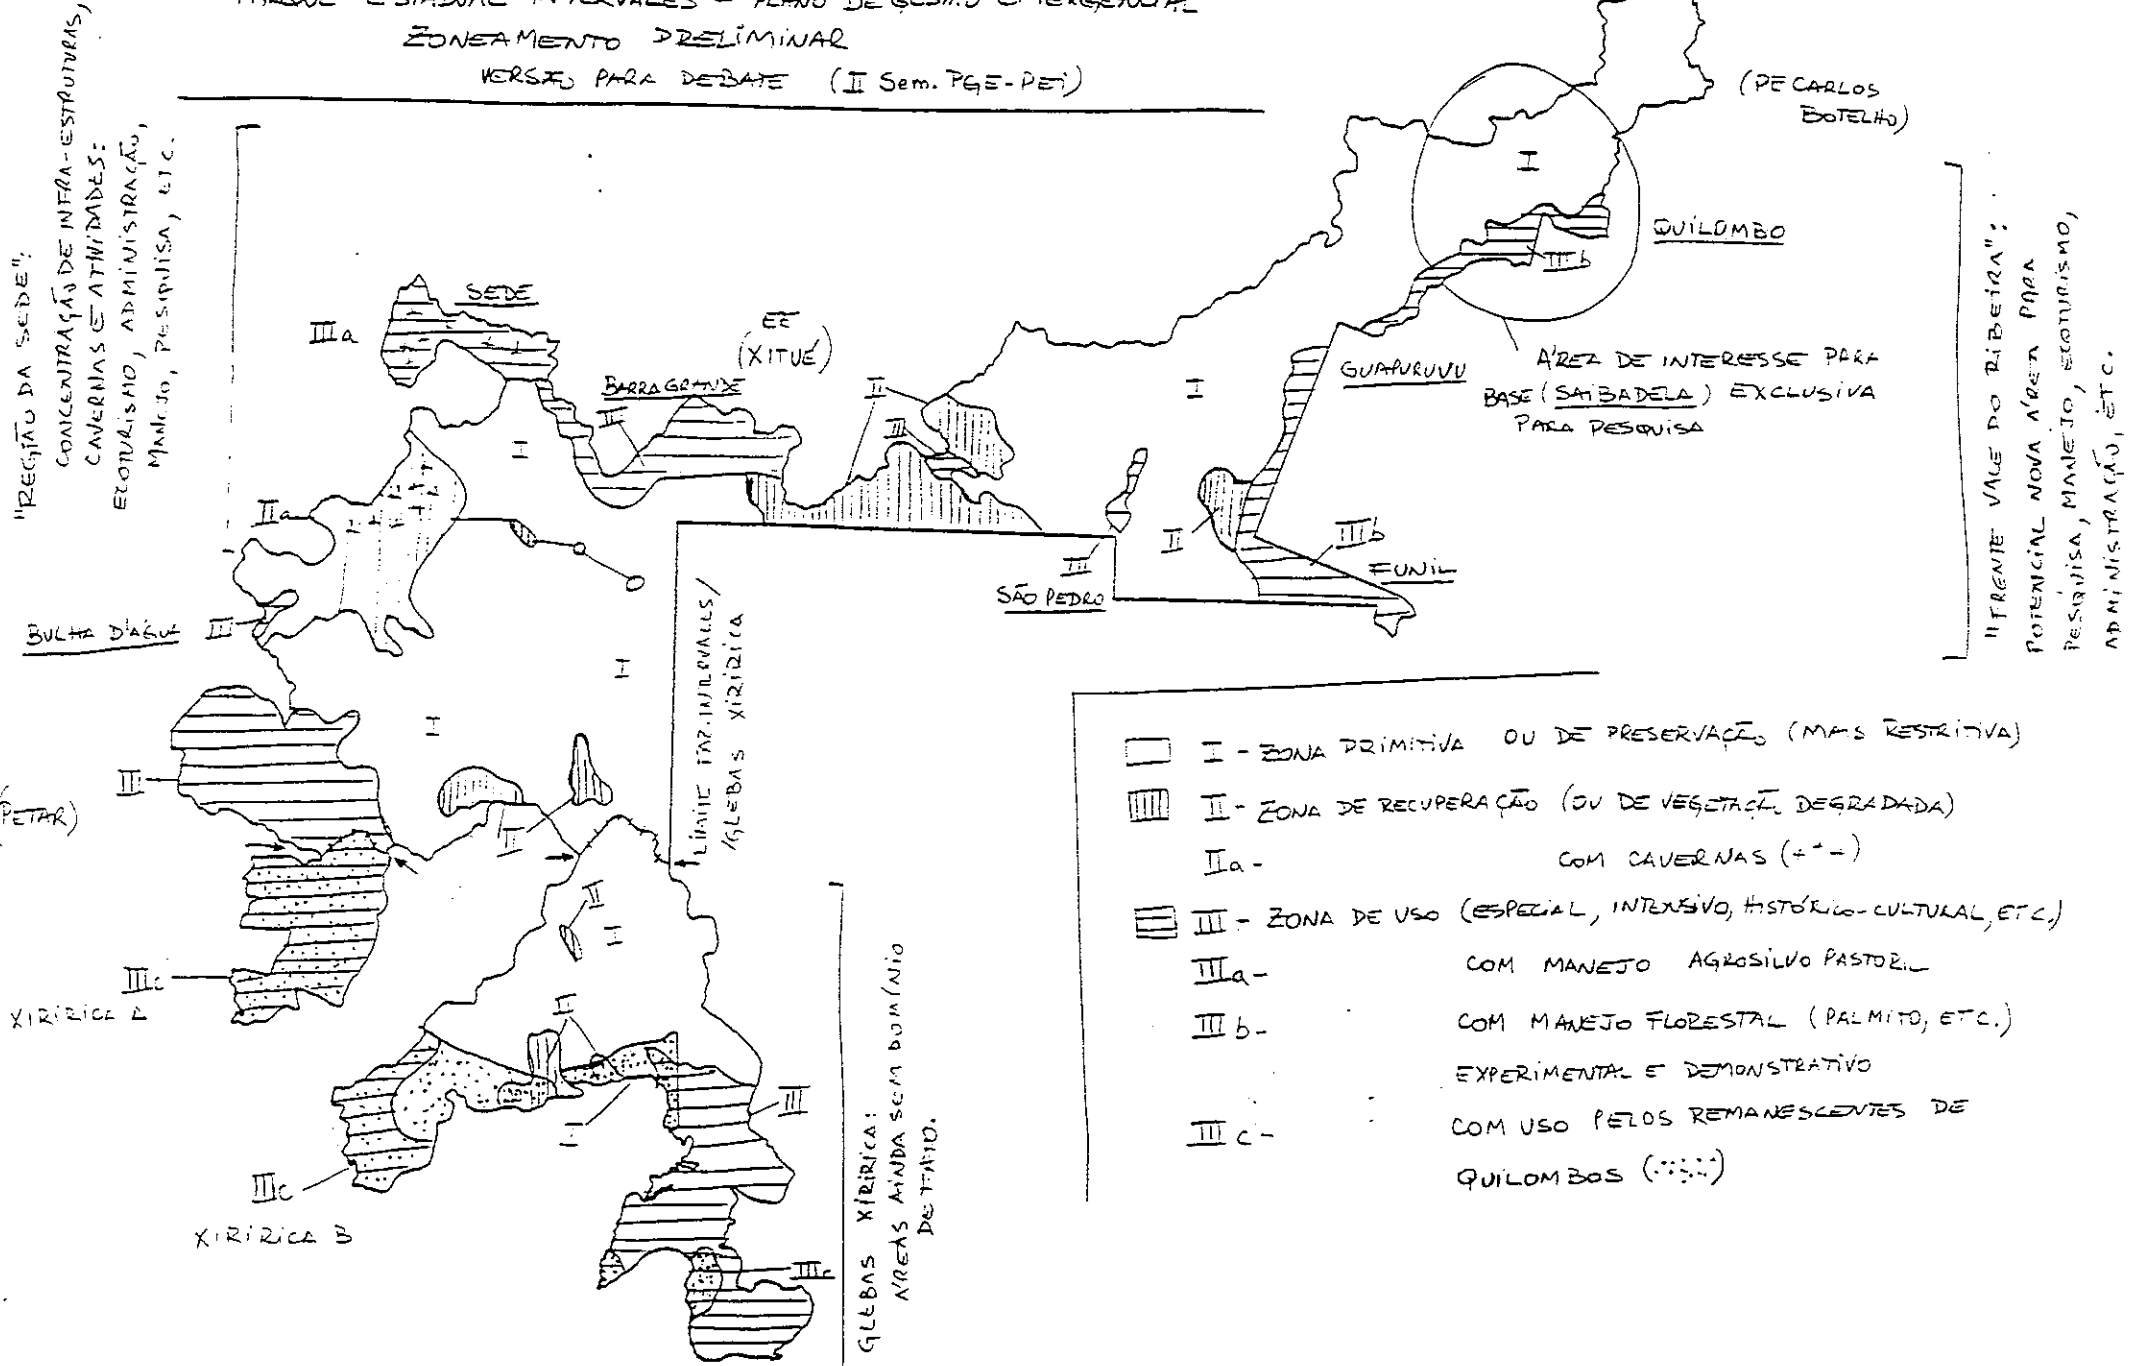 PARQUE ESTADUAL INTERVALES - PLANO DE GESTÃO EMERGENCIAL
ZONEAMENTO PRELIMINAR
VERSÃO PARA DEBATE (II Sem. PGE-PEI)
"REGIÃO DA SEDE":
CONCENTRAÇÃO DE INFRA-ESTRUTURAS,
CAVERNAS E ATIVIDADES:
ECOTURISMO, ADMINISTRAÇÃO,
MANEJO, PESQUISA, ETC.
(PE CARLOS
BOTELHO)
I
QUILOMBO
III b
"FRENTE VALE DO RIBEIRA":
POTENCIAL NOVA ÁREA PARA
PESQUISA, MANEJO, ECOTURISMO,
ADMINISTRAÇÃO, ETC.
SEDE
III a
EE
(XITUÉ)
BARRA GRANDE
III
II
III
I
I
GUAPURUVU
ÁREA DE INTERESSE PARA
BASE (SAIBADELA) EXCLUSIVA
PARA PESQUISA
II a
II
III b
III
FUNIL
SÃO PEDRO
BULHA D'ÁGUA
III
I
LIMITE FAZ. INTERVALES/
/GLEBAS XIRIRICA
I
III
(PETAR)
II
II
I
III c
XIRIRICA A
II
III
I
III c
XIRIRICA B
III c
GLEBAS XIRIRICA:
ÁREAS AINDA SEM DOMÍNIO
DEFINIDO.
I - ZONA PRIMITIVA OU DE PRESERVAÇÃO (MAIS RESTRITIVA)
II - ZONA DE RECUPERAÇÃO (OU DE VEGETAÇÃO DEGRADADA)
II a - COM CAVERNAS (+ + +)
III - ZONA DE USO (ESPECIAL, INTENSIVO, HISTÓRICO-CULTURAL, ETC.)
III a - COM MANEJO AGROSILVO PASTORIL
III b - COM MANEJO FLORESTAL (PALMITO, ETC.)
EXPERIMENTAL E DEMONSTRATIVO
III c - COM USO PELOS REMANESCENTES DE
QUILOMBOS (·:·:·:)